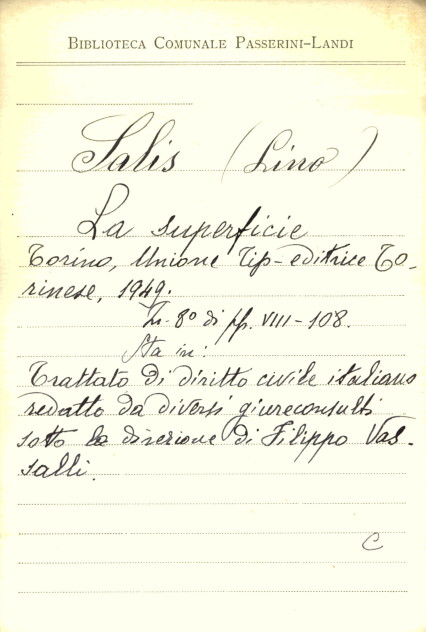 BIBLIOTECA COMUNALE PASSERINI-LANDI
Salis (Lino)
La superficie
Torino, Unione Tip-editrice To-
rinese, 1949.
In-8° di pp. VIII-108.
Sta in:
Trattato di diritto civile italiano
redatto da diversi giureconsulti
sotto la direzione di Filippo Vas-
salli.
C